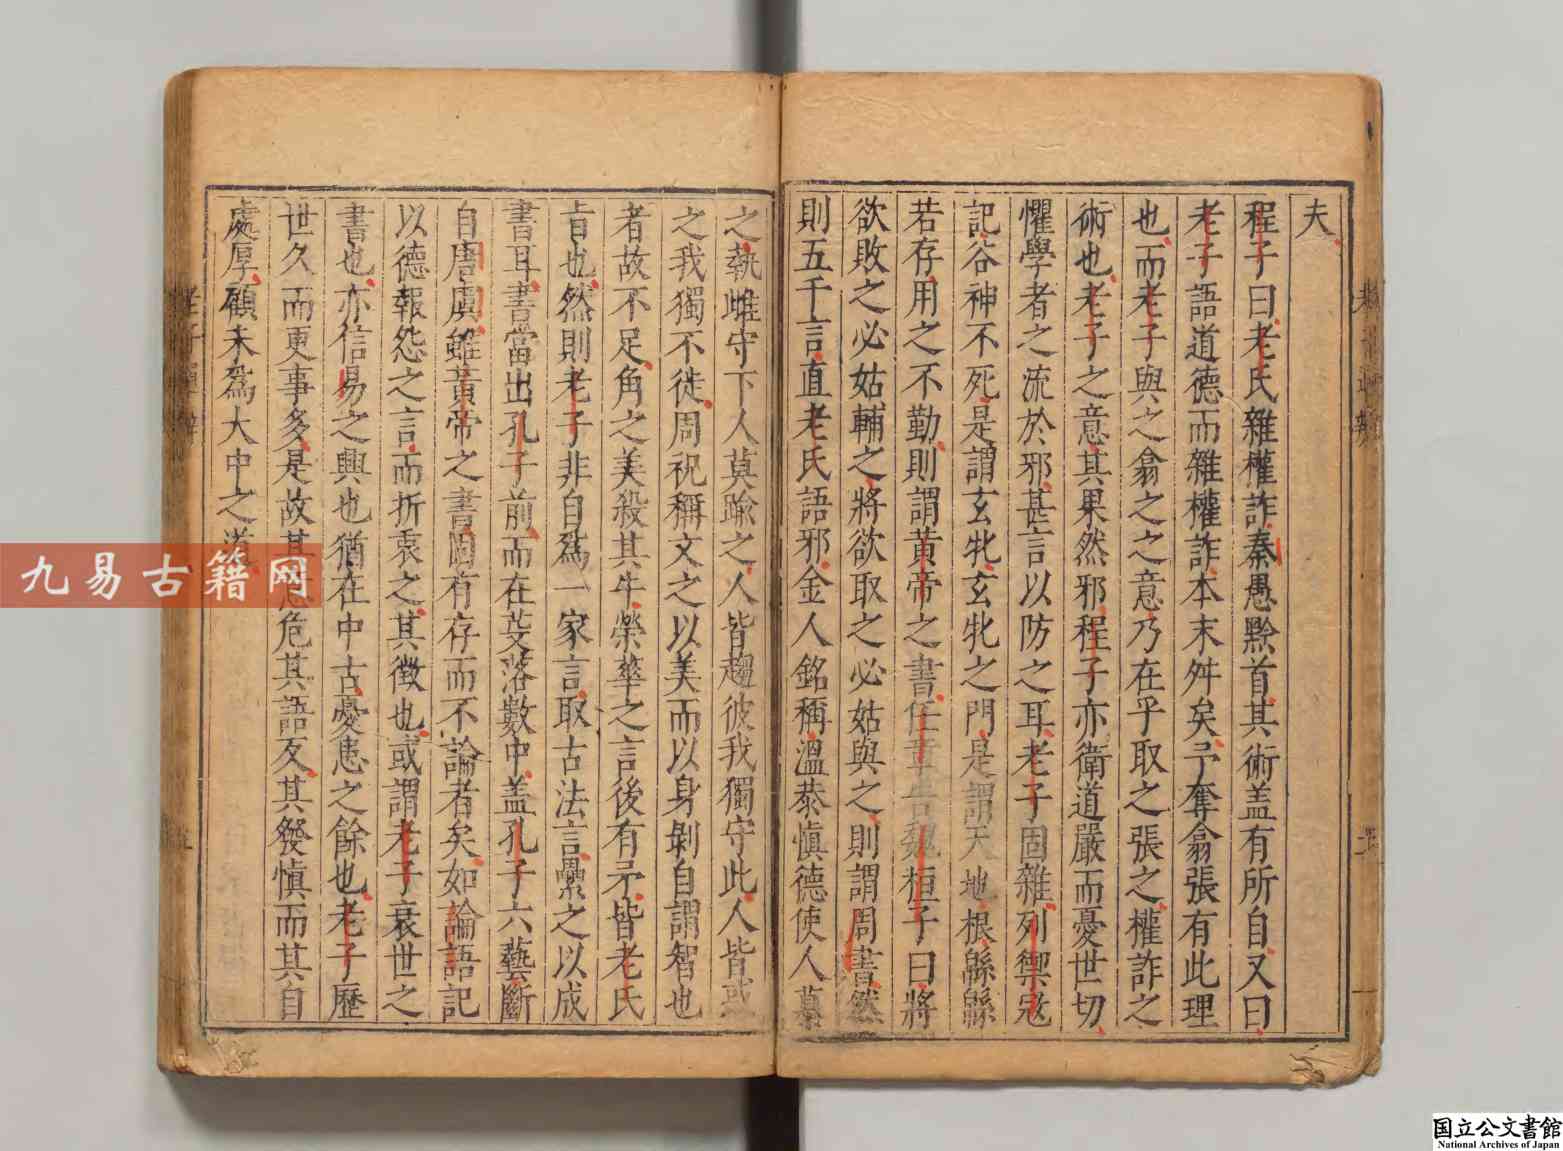 夫
程子曰老氏雜權詐秦愚黔首其術盖有所自又曰
老子語道德而雜權詐本末舛矣予奪翕張有此理
也而老子與之翕之之意乃在乎取之張之權詐之
術也老子之意其果然邪程子亦衛道嚴而憂世切
懼學者之流於邪甚言以防之耳老子固雜列禦寇
記谷神不死是謂玄牝玄牝之門是謂天地根緜緜
若存用之不勤則謂黃帝之書任章魏桓子曰將
欲敗之必姑輔之將欲取之必姑與之則謂周書然
則五千言直老氏語邪金人銘稱溫恭慎德使人慕
之執雌守下人莫踰之人皆趨彼我獨守此人皆惑
之我獨不徙周祝稱文之以美而以身剝自謂智也
者故不足角之美殺其牛榮華之言後有矛皆老氏
旨也然則老子非自爲一家言取古法言纍之以成
書耳書當出孔子前而在芟落數中盖孔子六藝斷
自唐虞雖黃帝之書固有存而不論者矣如論語記
以德報怨之言而折衷之其徵也或謂老子衰世之
書也亦信易之興也猶在中古憂患之餘也老子歷
世久而更事多是故其危其語反其發慎而其自
處厚顧未爲大中之道
九易古籍网
国立公文書館
National Archives of Japan